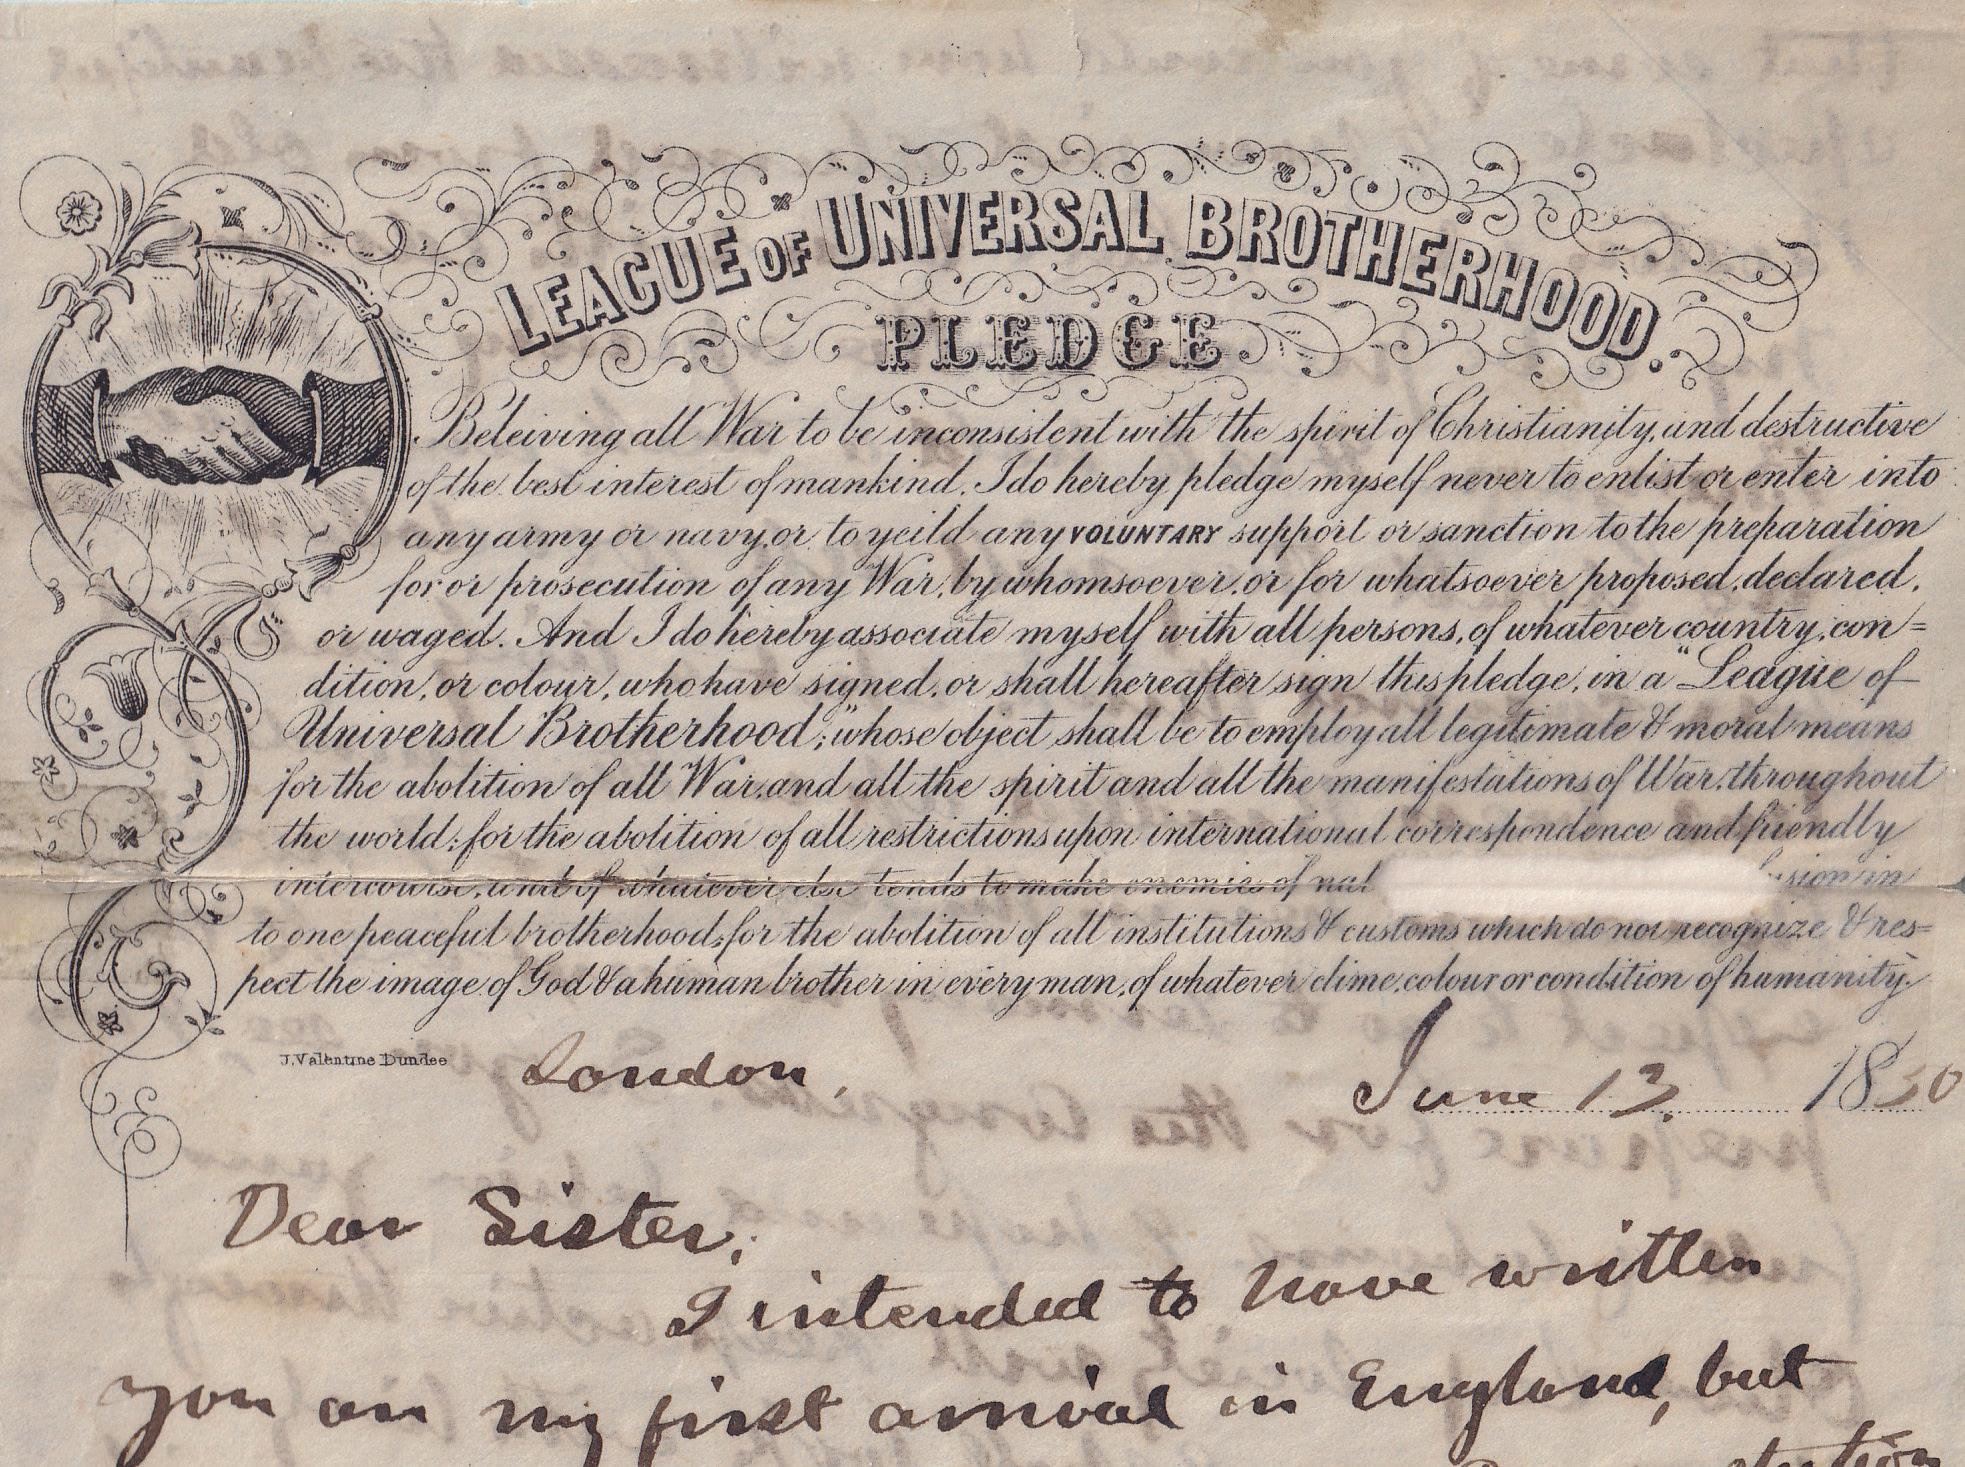 LEAGUE OF UNIVERSAL BROTHERHOOD.
PLEDGE
Beleiving all War to be inconsistent with the spirit of Christianity, and destructive
of the best interest of mankind. I do hereby pledge myself never to enlist or enter into
any army or navy, or to yeild any VOLUNTARY support or sanction to the preparation
for or prosecution of any War, by whomsoever, or for whatsoever proposed, declared,
or waged. And I do hereby associate myself with all persons, of whatever country, con=
dition, or colour, who have signed, or shall hereafter sign this pledge, in a "League of
Universal Brotherhood;" whose object shall be to employ all legitimate & moral means
for the abolition of all War, and all the spirit and all the manifestations of War, throughout
the world; for the abolition of all restrictions upon international correspondence and friendly
intercourse, and of whatever else tends to make enemies of nat sion in
to one peaceful brotherhood; for the abolition of all institutions & customs which do not recognize & res=
pect the image of God & a human brother in every man, of whatever clime, colour or condition of humanity.
J. Valentine Dundee
London, June 13. 1850
Dear Sister,
I intended to have written
you on my first arrival in England, but